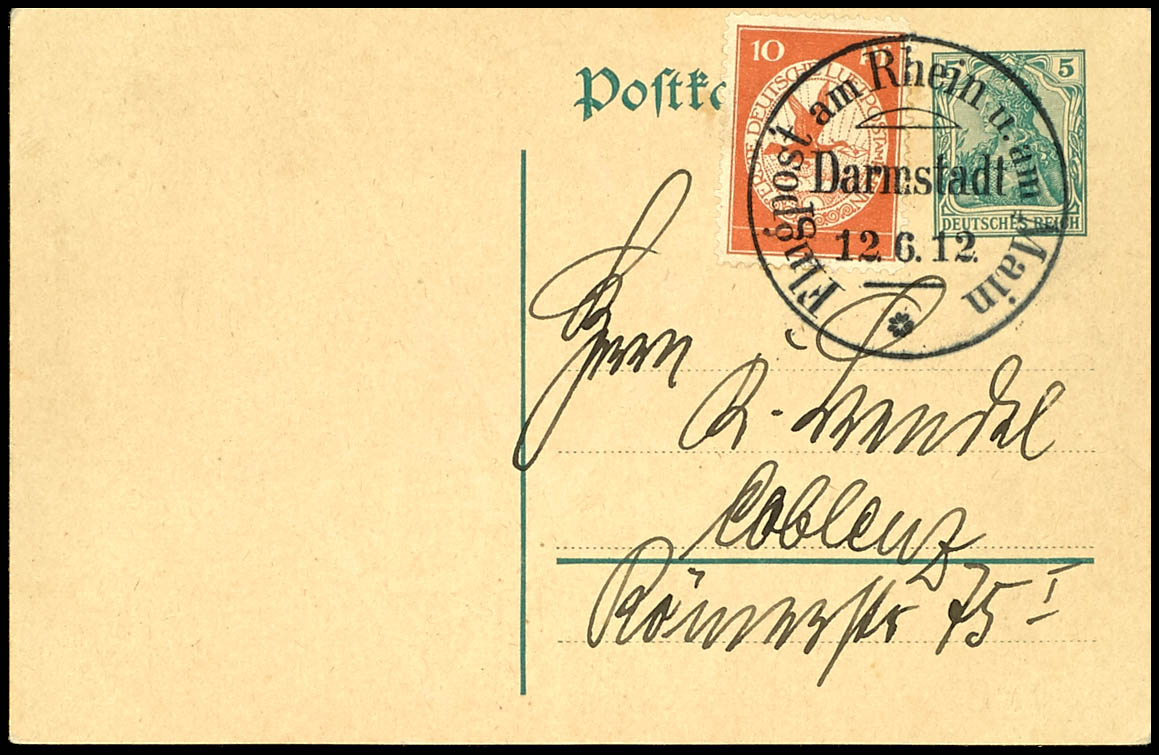 Postk
10 Pf
DEUTSCHE LUFTPOST AM RHEIN
5 5
DEUTSCHES REICH
Flugpost am Rhein u. am Main
Darmstadt
12.6.12.
Herrn
R. Wendel
Coblenz
Römerstr 75 I